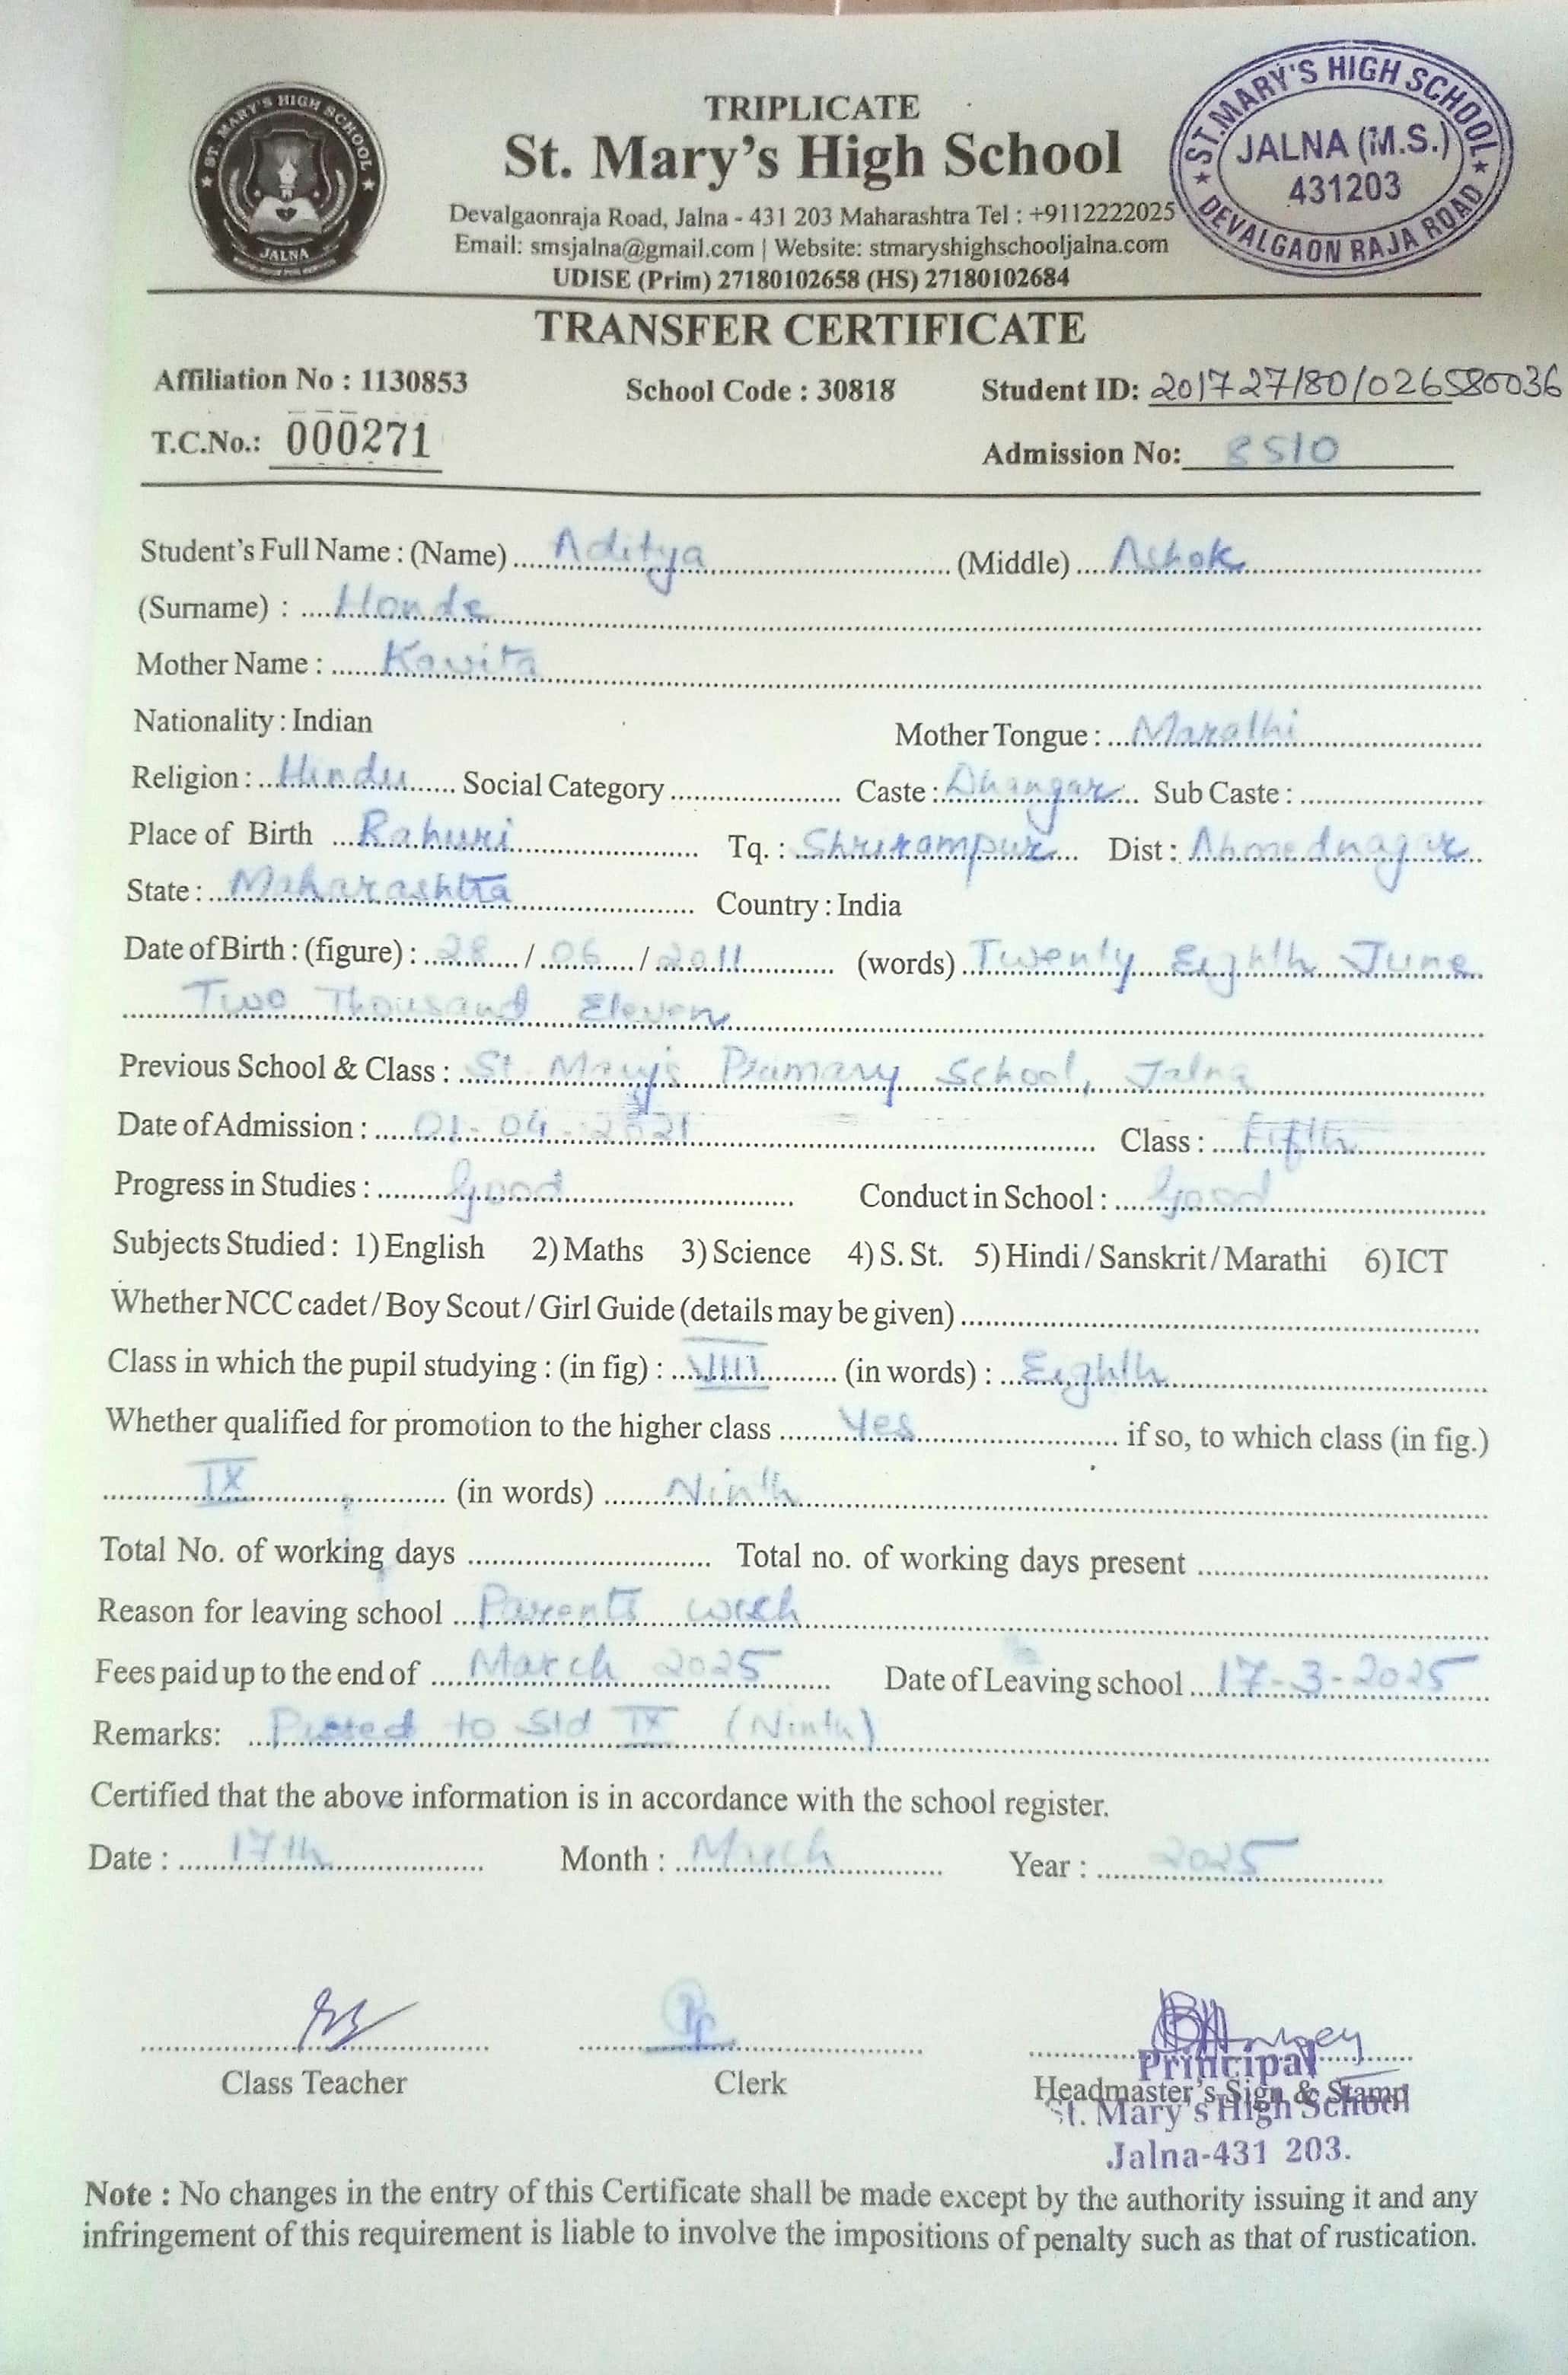 TRIPLICATE
St. Mary's High School
Devalgaonraja Road, Jalna - 431 203 Maharashtra Tel : +9112222025
Email: smsjalna@gmail.com | Website: stmaryshighschooljalna.com
UDISE (Prim) 27180102658 (HS) 27180102684
ST. MARY'S HIGH SCHOOL
JALNA
ST. MARY'S HIGH SCHOOL
JALNA (M.S.)
431203
DEVALGAON RAJA ROAD
TRANSFER CERTIFICATE
Affiliation No : 1130853 School Code : 30818 Student ID: 2017271801026580036
T.C.No.: 000271 Admission No: 8510
Student's Full Name : (Name) Aditya (Middle) Ashok
(Surname) : Honde
Mother Name : Kavita
Nationality : Indian Mother Tongue : Marathi
Religion : Hindu Social Category Caste : Dhangar Sub Caste :
Place of Birth Rahuri Tq. : Shrirampur Dist : Ahmednagar
State : Maharashtra Country : India
Date of Birth : (figure) : 28 / 06 / 2011 (words) Twenty Eighth June
Two Thousand Eleven
Previous School & Class : St. Mary's Primary School, Jalna
Date of Admission : 01-04-2021 Class : Fifth
Progress in Studies : Good Conduct in School : Good
Subjects Studied : 1) English 2) Maths 3) Science 4) S. St. 5) Hindi / Sanskrit / Marathi 6) ICT
Whether NCC cadet / Boy Scout / Girl Guide (details may be given)
Class in which the pupil studying : (in fig) : VIII (in words) : Eighth
Whether qualified for promotion to the higher class Yes if so, to which class (in fig.)
IX (in words) Ninth
Total No. of working days Total no. of working days present
Reason for leaving school Parents wish
Fees paid up to the end of March 2025 Date of Leaving school 17-3-2025
Remarks: to Std IX (Ninth)
Certified that the above information is in accordance with the school register.
Date : 17th Month : March Year : 2025
Class Teacher Clerk Headmaster's Sign & Stamp
Principal
St. Mary's High School
Jalna-431 203.
Note : No changes in the entry of this Certificate shall be made except by the authority issuing it and any
infringement of this requirement is liable to involve the impositions of penalty such as that of rustication.